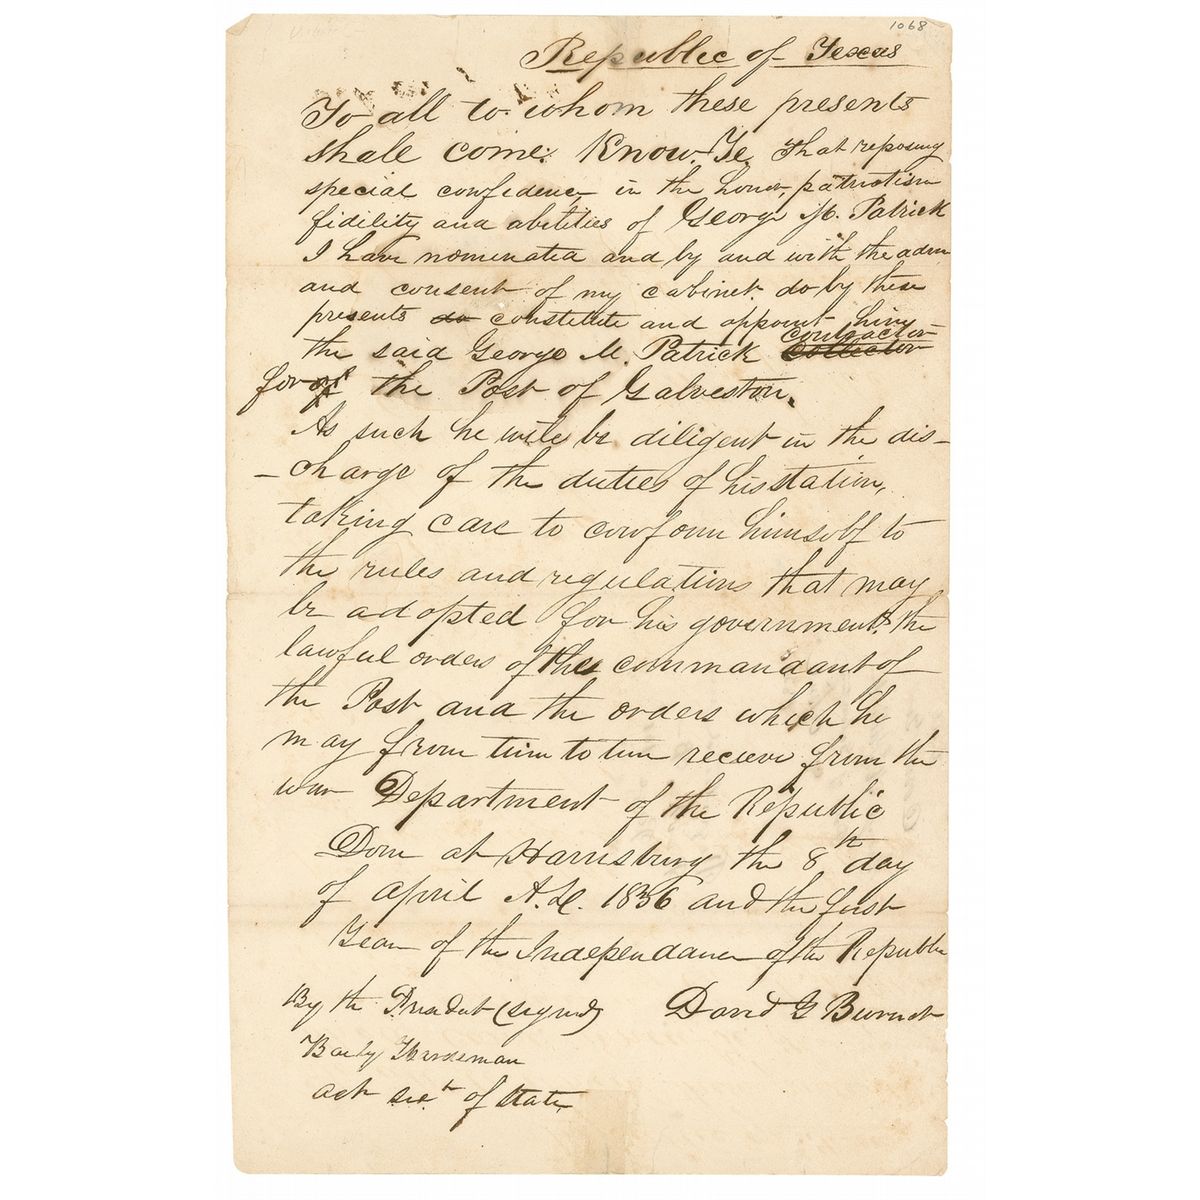 1068
Republic of Texas
To all to whom these presents
shall come: Know Ye That reposing
special confidence in the honor, patriotism
fidelity and abilities of George M. Patrick
I have nominated and by and with the advice
and consent of my cabinet do by these
presents do constitute and appoint him
the said George M. Patrick collector contractor
for of the Post of Galveston.
As such he will be diligent in the dis–
–charge of the duties of his station,
taking care to conform himself to
the rules and regulations that may
be adopted for his government, the
lawful orders of the commandant of
the Post and the orders which he
may from time to time recieve from the
war Department of the Republic
Done at Harrisburg the 8th day
of april A.D. 1836 and the first
Year of the Independance of the Republic
By the President (signed) David G Burnet
Baily Hardeman
act sect. of State